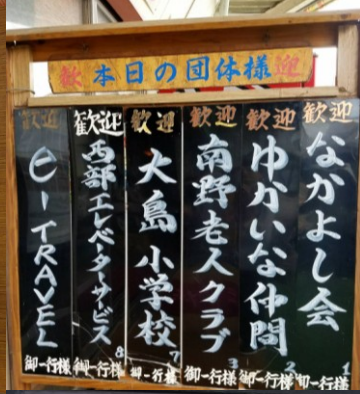 歓 本日の団体様 迎
歓迎 なかよし会 御一行様 1
歓迎 ゆかいな仲間 御一行様 2
歓迎 南野老人クラブ 御一行様 3
歓迎 大島小学校 御一行様 7
歓迎 西部エレベーターサービス 御一行様 8
歓迎 e-TRAVEL 御一行様